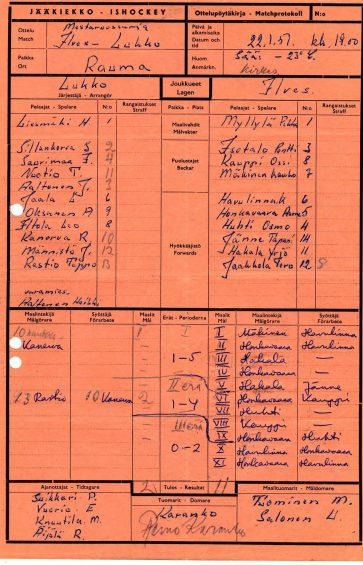 JÄÄKIEKKO - ISHOCKEY
Ottelupöytäkirja - Matchprotokoll N:o
Ottelu Match Mestaruussarja Ilves - Lukko
Päivä ja alkamisaika Datum och tid 22.1.51. kh. 19.00
Paikka Ort Rauma
Huom. Anmärkn. Sää - 23° C. kirkas
Lukko
Järjestäjä - Arrangör
Joukkueet Lagen
Ilves.
Pelaajat - Spelare N:o Rangaistukset Straff Paikka - Plats Pelaajat - Spelare N:o Rangaistukset Straff
Liesmäki H 1 Maalivahdit Målvakter Myllylä 1
Sillankorva S 2
Saurimaa J. 4 Puolustajat Backar Isotalo Pentti 3
Vuotio T. 11 Kauppi Ossi 8
Aaltonen J. 3 Mäkinen 7
Jaala L 6
Oksanen A 9 Havulinnak 6
Iltola Leo 8 Honkavaara 5
Kanerva R 10 Hyökkääjistö Forwards Huhti Osmo 4
Männistö J. 12 Jänne Tapani 14
Rastio Teppo 13 Hakala Yrjö 11
Jaakkola Tero 12
varamies.
Aaltonen Heikki
Maalintekijä Målgörare Syöttäjä Förarbete Maalit Mål Erät - Perioderna Maalit Mål Maalintekijä Målgörare Syöttäjä Förarbete
10 Kanerva 1 I I Mäkinen Havulinna
II Honkavaara Havulinna
1-5 III Hakala —
IV Honkavaara —
II erä V Hakala Jänne
13 Rastio 10 Kanerva 2 1-4 VI Honkavaara Kauppi
VII Huhti —
III erä VIII Kauppi —
IX Honkavaara Huhti
0-2 X Honkavaara Havulinna
XI Honkavaara Havulinna
Ajanottajat - Tidtagare 2 Tulos - Resultat 11 Maalituomarit - Måldomare
Suikkari P. Tuomarit - Domare Tuominen M.
Vuorio E Karanko Salonen U.
Knuutila M. Reino Karanko
Äijälä R.